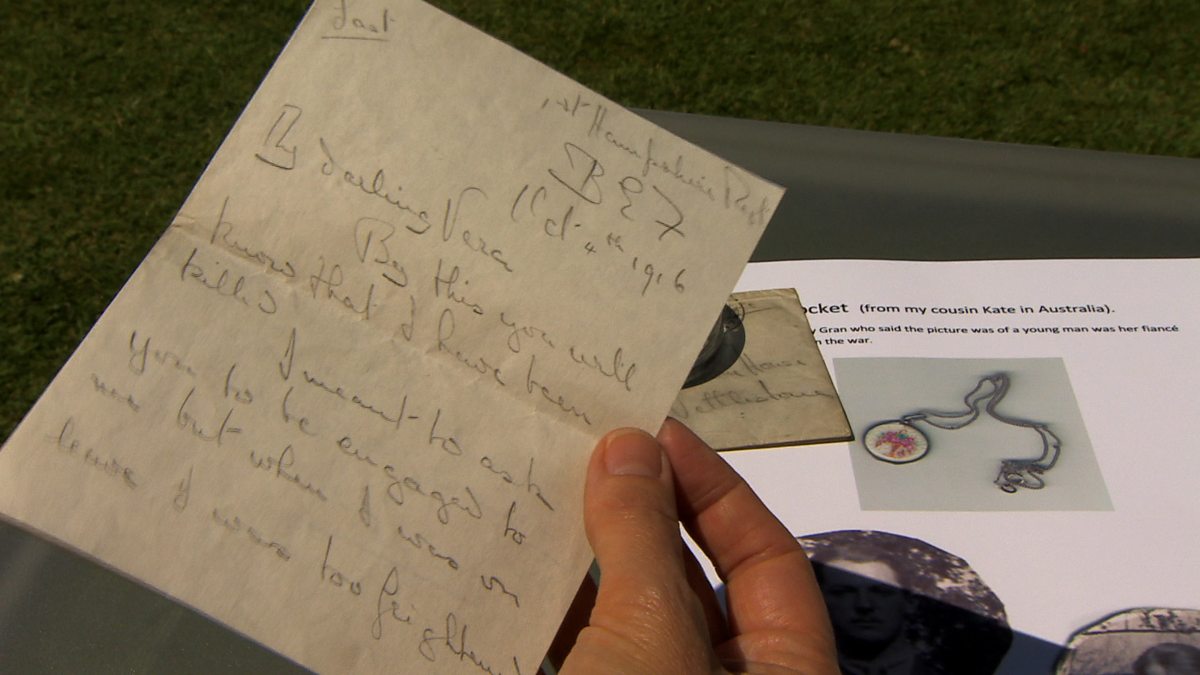 Last
1st Hampshire Regt
B E F
Oct 4th 1916
My darling Vera
By this you will
know that I have been
killed
I meant to ask
you to be engaged to
me but when I was on
leave I was too frightened
ocket (from my cousin Kate in Australia).
y Gran who said the picture was of a young man was her fiancé
n the war.
House